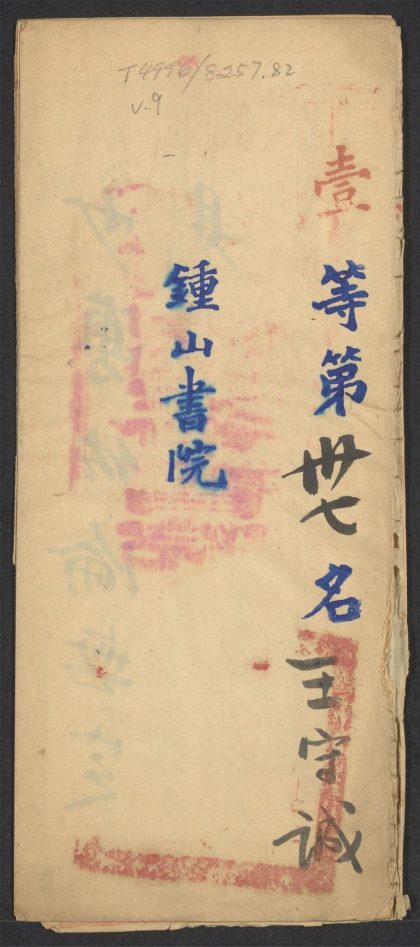 T4996/8257.82
v.9
壹等第卅七名王守誠
鍾山書院